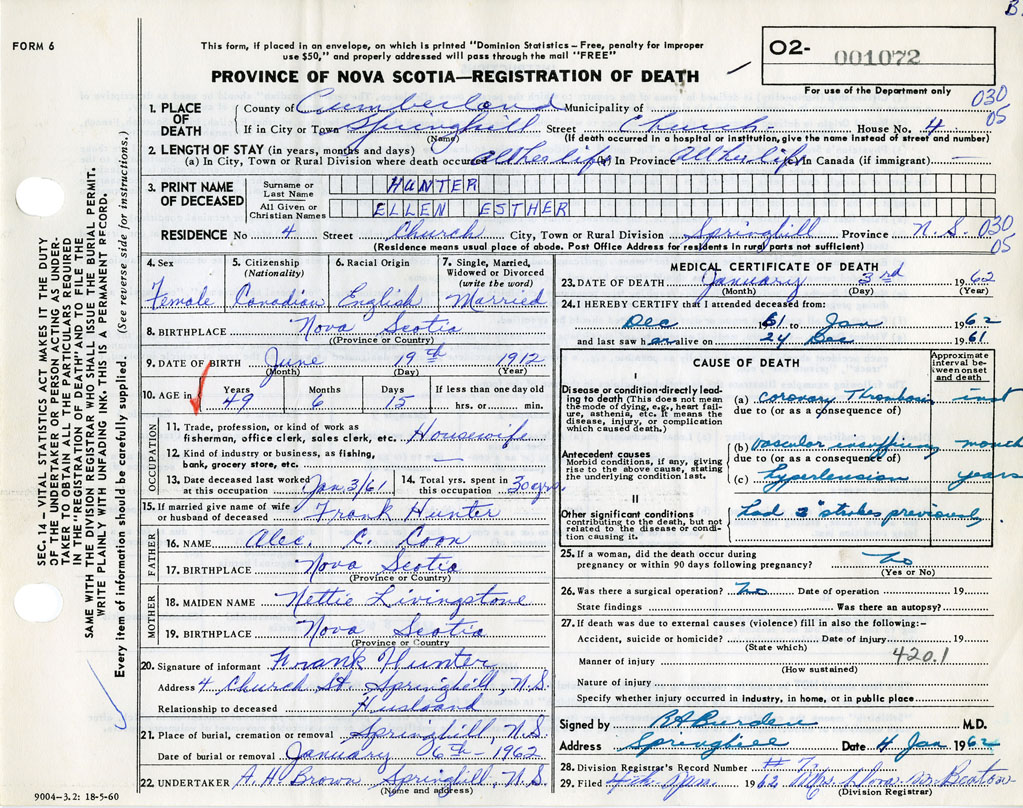 B.
FORM 6
This form, if placed in an envelope, on which is printed "Dominion Statistics – Free, penalty for improper
use $50," and properly addressed will pass through the mail "FREE"
PROVINCE OF NOVA SCOTIA—REGISTRATION OF DEATH
O2- 001072
For use of the Department only
030
05
1. PLACE OF DEATH { County of Cumberland Municipality of
If in City or Town Springhill Street Church House No. 4
(Name) (If death occurred in a hospital or institution, give the name instead of street and number)
2. LENGTH OF STAY (in years, months and days)
(a) In City, Town or Rural Division where death occurred all her life (b) In Province All her life (c) In Canada (if immigrant) —
3. PRINT NAME OF DECEASED { Surname or Last Name HUNTER
All Given or Christian Names ELLEN ESTHER
RESIDENCE No 4 Street Church City, Town or Rural Division Springhill Province N.S.
030
05
(Residence means usual place of abode. Post Office Address for residents in rural parts not sufficient)
4. Sex 5. Citizenship (Nationality) 6. Racial Origin 7. Single, Married, Widowed or Divorced (write the word)
Female Canadian English Married
8. BIRTHPLACE Nova Scotia
(Province or Country)
9. DATE OF BIRTH June 19th 1912
(Month) (Day) (Year)
10. AGE in { Years Months Days If less than one day old
49 6 15 hrs. or min.
OCCUPATION
11. Trade, profession, or kind of work as
fisherman, office clerk, sales clerk, etc. Housewife
12. Kind of industry or business, as fishing,
bank, grocery store, etc. —
13. Date deceased last worked at this occupation Jan 3/61 14. Total yrs. spent in this occupation 30 yrs.
15. If married give name of wife or husband of deceased Frank Hunter
FATHER
16. NAME Alec C. Coon
17. BIRTHPLACE Nova Scotia
(Province or Country)
MOTHER
18. MAIDEN NAME Nettie Livingstone
19. BIRTHPLACE Nova Scotia
(Province or Country)
20. Signature of informant Frank Hunter
Address 4 Church St. Springhill, N.S.
Relationship to deceased Husband
21. Place of burial, cremation or removal Springhill, N.S.
Date of burial or removal January 6th – 1962
22. UNDERTAKER A.H. Brown Springhill, N.S.
(Name and address)
9004–3.2: 18-5-60
MEDICAL CERTIFICATE OF DEATH
23. DATE OF DEATH January 3rd 1962
(Month) (Day) (Year)
24. I HEREBY CERTIFY that I attended deceased from:
Dec 161 to Jan 1962
and last saw her alive on 24 Dec 1961
CAUSE OF DEATH
Approximate interval between onset and death
I
Disease or condition directly leading to death (This does not mean
the mode of dying, e.g., heart failure, asthenia, etc. It means the
disease, injury, or complication which caused death.)
(a) coronary Thrombosis inst
due to (or as a consequence of)
Antecedent causes
Morbid conditions, if any, giving
rise to the above cause, stating
the underlying condition last.
(b) vascular insufficiency month
due to (or as a consequence of)
(c) Hypertension years
II
Other significant conditions
contributing to the death, but not
related to the disease or condition causing it.
had 3 "strokes previously
25. If a woman, did the death occur during
pregnancy or within 90 days following pregnancy? no
(Yes or No)
26. Was there a surgical operation? no Date of operation 19
State findings Was there an autopsy?
27. If death was due to external causes (violence) fill in also the following:–
Accident, suicide or homicide? Date of injury 19
(State which)
420.1
Manner of injury
(How sustained)
Nature of injury
Specify whether injury occurred in industry, in home, or in public place
Signed by R A Burden M.D.
Address Springhill Date 4 Jan 1962
28. Division Registrar's Record Number # 7
29. Filed 4th 1962 Mrs. Beaton
(Division Registrar)
SEC. 14 – VITAL STATISTICS ACT MAKES IT THE DUTY
OF THE UNDERTAKER OR PERSON ACTING AS UNDERTAKER TO OBTAIN ALL THE PARTICULARS REQUIRED
IN THE "REGISTRATION OF DEATH" AND TO FILE THE
SAME WITH THE DIVISION REGISTRAR WHO SHALL ISSUE THE BURIAL PERMIT.
WRITE PLAINLY WITH UNFADING INK. THIS IS A PERMANENT RECORD.
Every item of information should be carefully supplied. (See reverse side for instructions.)